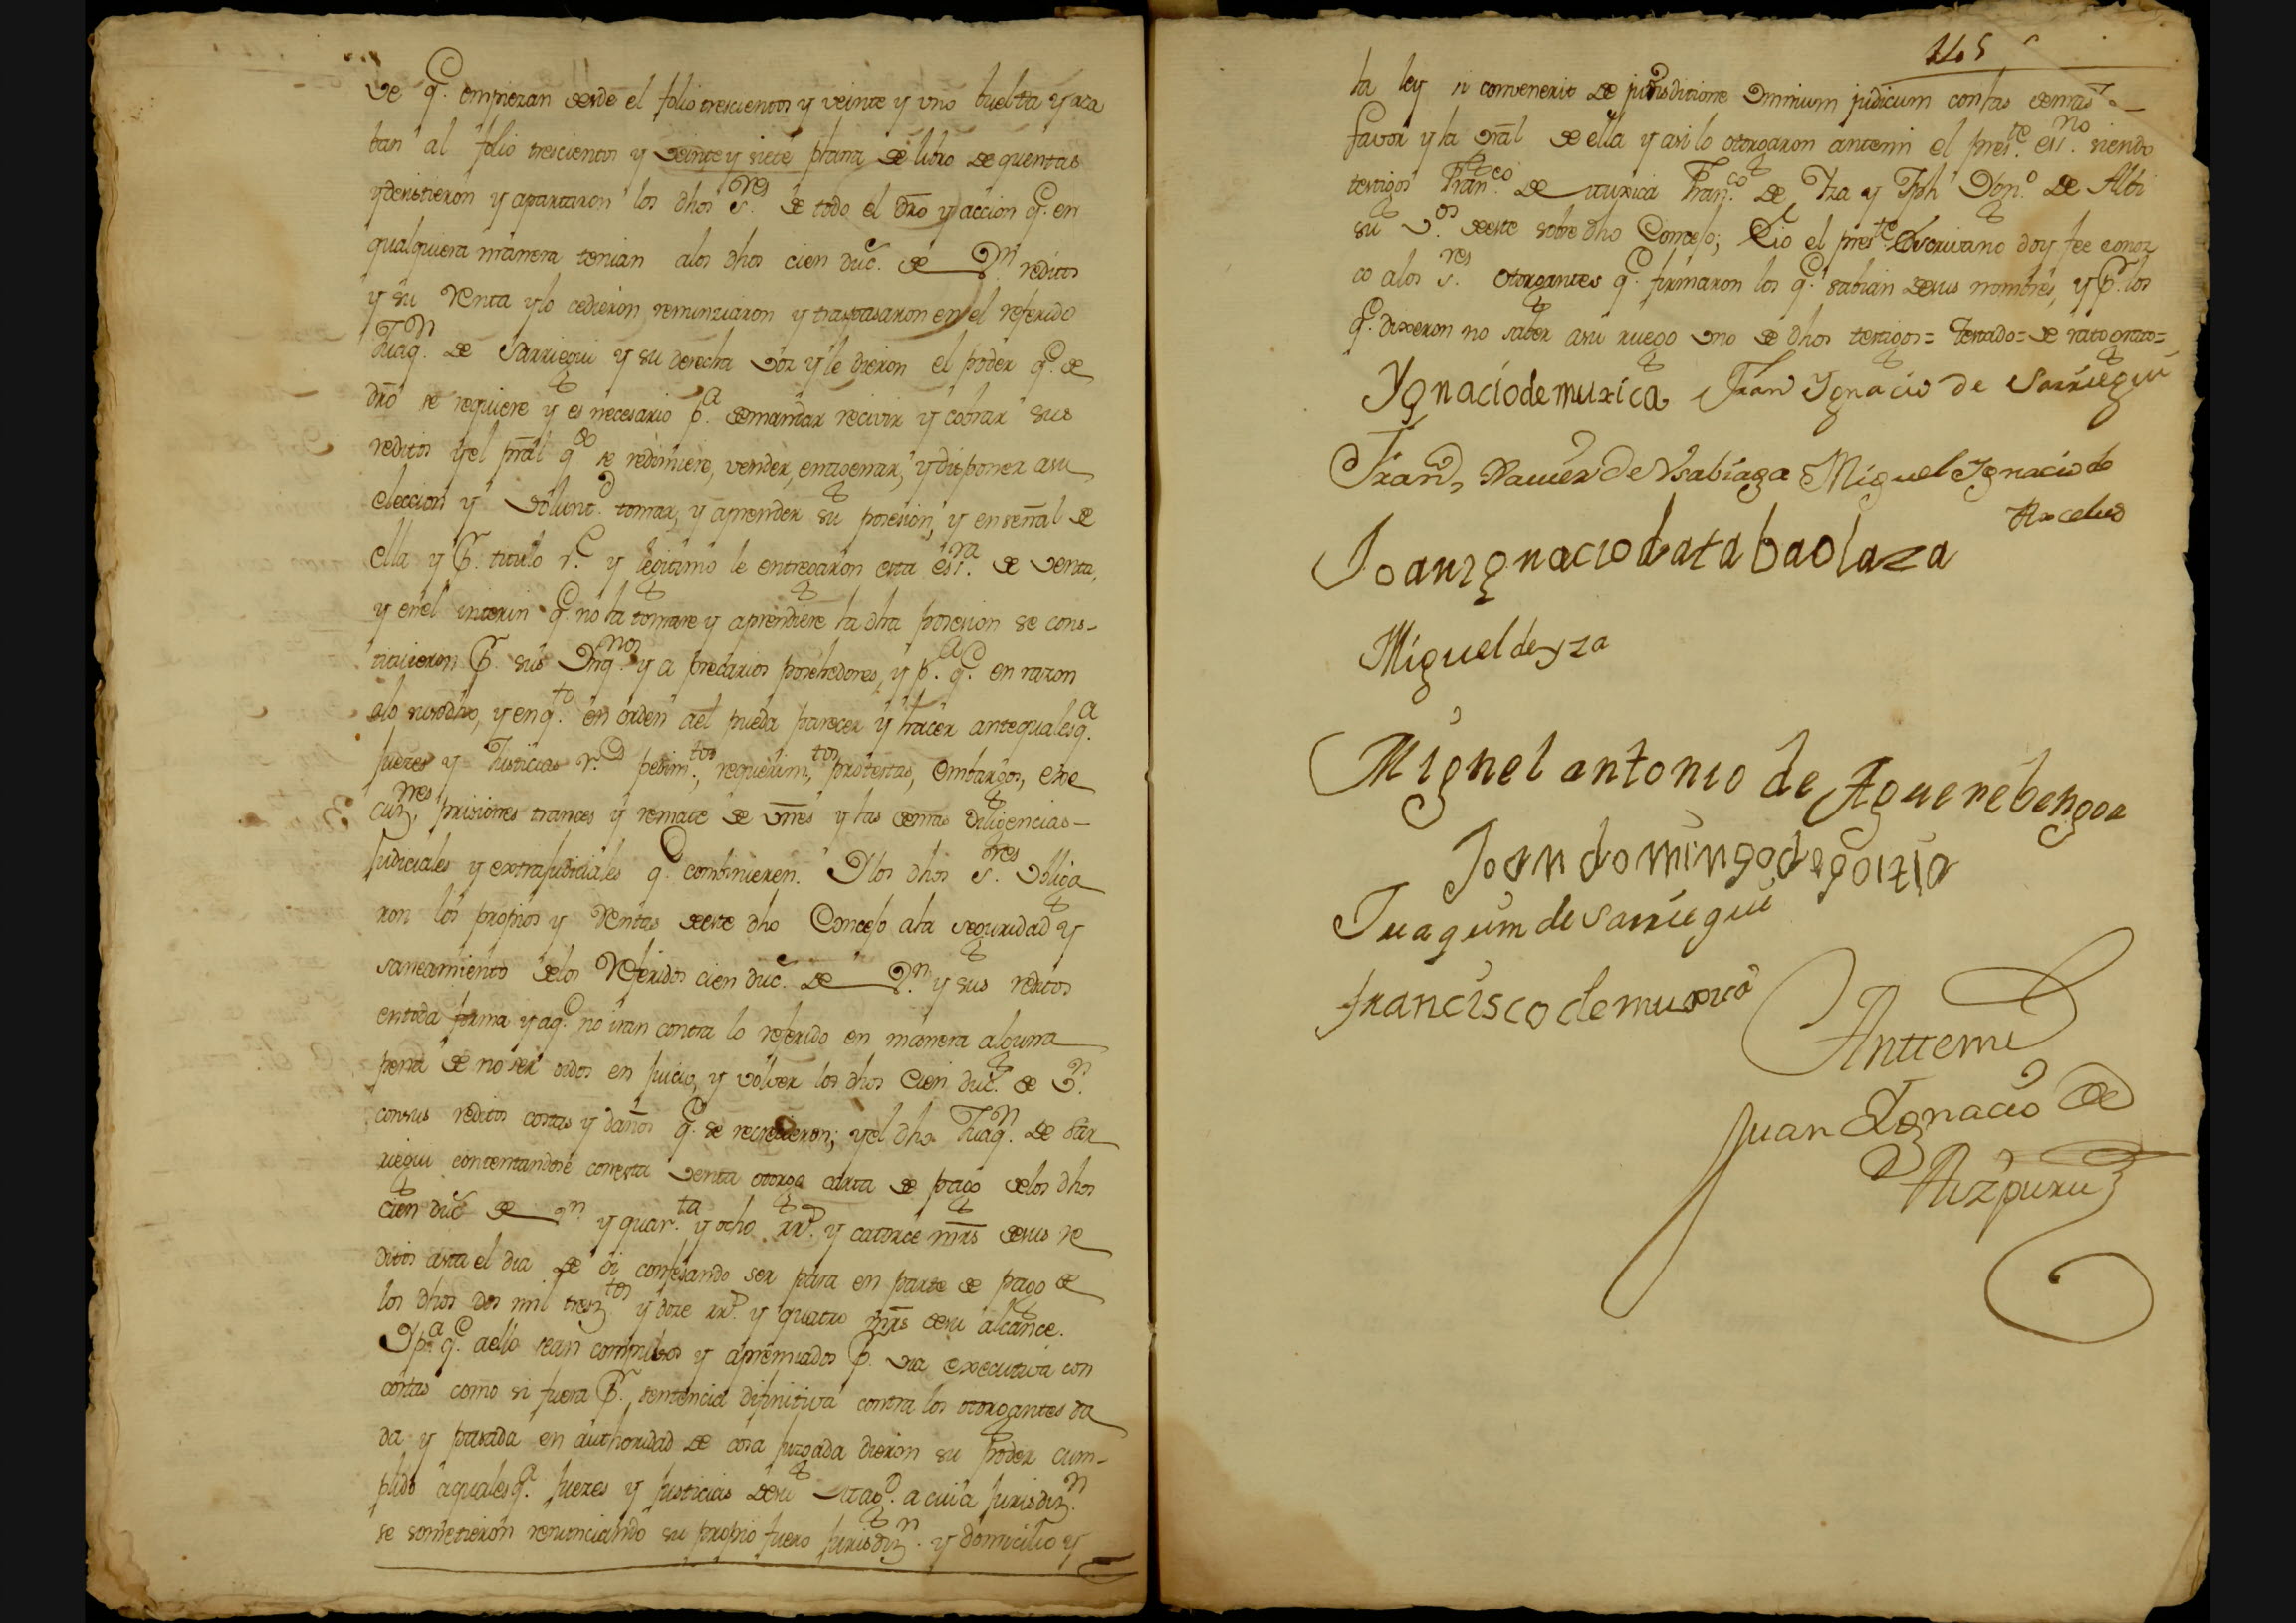 de q.e empiezan desde el folio trescientos y veinte y vno buelta y aca
ban al folio trescientos y veinte y siete plana de libro de quentas
y desistieron y apartaron los dhos S.res de todo el dro y accion q.e en
qualquiera manera tenian alos dhos cien duc.s de v.n reditos
y su Renta y lo cedieron renunziaron y traspasaron en el referido
Juaq.n de Sarriegui y su derecha voz y le dieron el poder q.e de
dro se requiere y es necesario p.a demandar recivir y cobrar sus
reditos y el pral q.do se redimiere, vender, enagenar, y disponer asu
eleccion y volunt.d tomar, y aprender su posesion, y en señal de
ella y P.r titulo r.l y legitimo le entregaron esta esr.ra de venta,
y enel interin q.e no la tomare y aprendiere la dha posesion se cons-
tituieron P.r sus Ynq.nos y a precarios posehedores, y p.a q.e en razon
alo susodho, y en q.to en orden ael pueda parecer y hacer antequalesq.a
juezes y Justicias r.s pedim.tos, requerim.tos, protestas, embargos, exe
cuz.nes, prisiones trances y remate de vnes y las demas diligencias-
Judiciales y extrajudiciales q.e combinieren. Y los dhos S.res obliga
ron los propios y Rentas deeste dho Concejo ala seguridad y
saneamiento delos Referidos cien duc.s de v.n y sus reditos
entoda forma y aq.e no iran contra lo referido en manera alguna
pena de no ser oidos en juicio, y volver los dhos Cien duc.s de v.n
consus reditos costas y daños q.e se recrecieron; y el dho Juaq.n de Sar
riegui contentandose conesta venta otorga carta de pago delos dhos
cien duc.s de v.n y quar.ta y ocho rr.s y catorce mrs desus re
ditos asta el dia de oi confesando ser para en parte de pago de
los dhos dos mil tresz.tos y doze rr.s y quatro mrs desu alcance.
Y p.a q.e aello sean compulsos y apremiados P.r via executiva con
costas como si fuera P.r sentencia difinitiva contra los otorgantes da
da y pasada en authoridad de cosa juzgada dieron su Poder cum-
plido aqualesq.a juezes y justicias desu Mag.d a cuia jurisdiz.n
se sometieron renunciando su propio fuero jurisdiz.n y domicilio y
la ley si convenerit de jurisditione Omnium judicum conlas demas
favor y la gral de ella y asi lo otorgaron antemi el pres.te ess.no siendo
testigos Fran.co de muxica Fran.co de Yza y Jph Dgn.o de Albi
su v.os deeste sobre dho Concejo; E io el pres.te Escrivano doy fee conoz
co alos S.res otorgantes q.e firmaron los q.e sabian desus nombres, y P.r los
q.e dixeron no saber asu ruego vno de dhos testigos=
Ygnacio de muxica Fran Ygnacio de Sarriegui
Fran.co Xauier de Ysabiaga Miguel Ygnacio de
Arcelus
Joan ygnacio de ata baolaza
Miguel de yza
Miguel antonio de Aguerebengoa
Joan domingo de goizia
Juaquim de Sarriegui
francisco de muxica
Anttemi
Juan Ygnacio de
Aizpuru